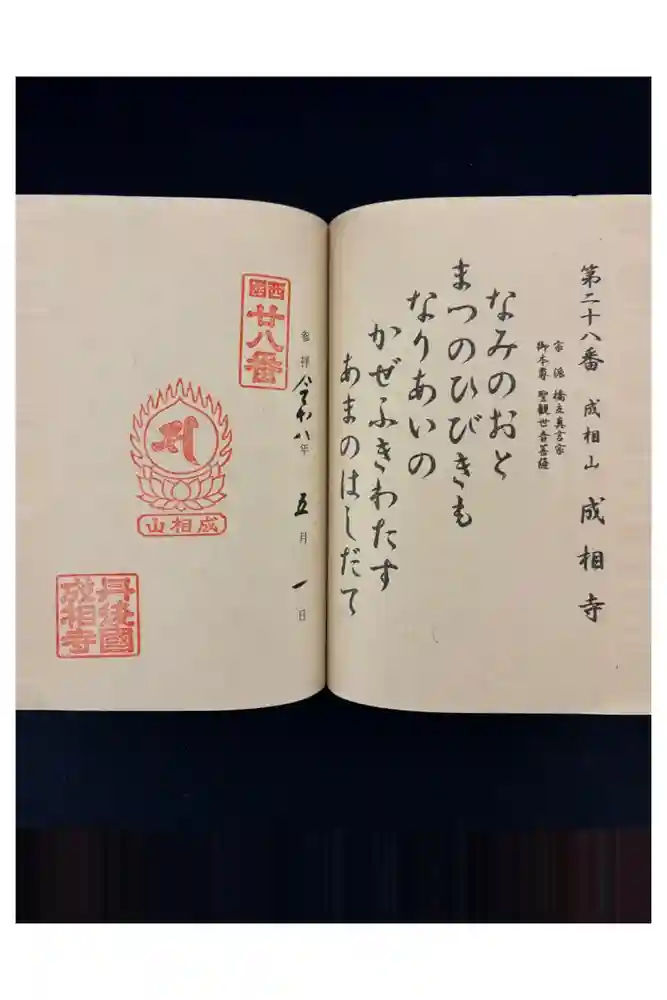 第二十八番 成相山 成相寺
宗派 橋立真言宗
御本尊 聖観世音菩薩
なみのおと
まつのひびきも
なりあいの
かぜふきわたす
あまのはしだて
参拝 令和八年 五月 一日
西国
廿八番
成相山
丹後國
成相寺